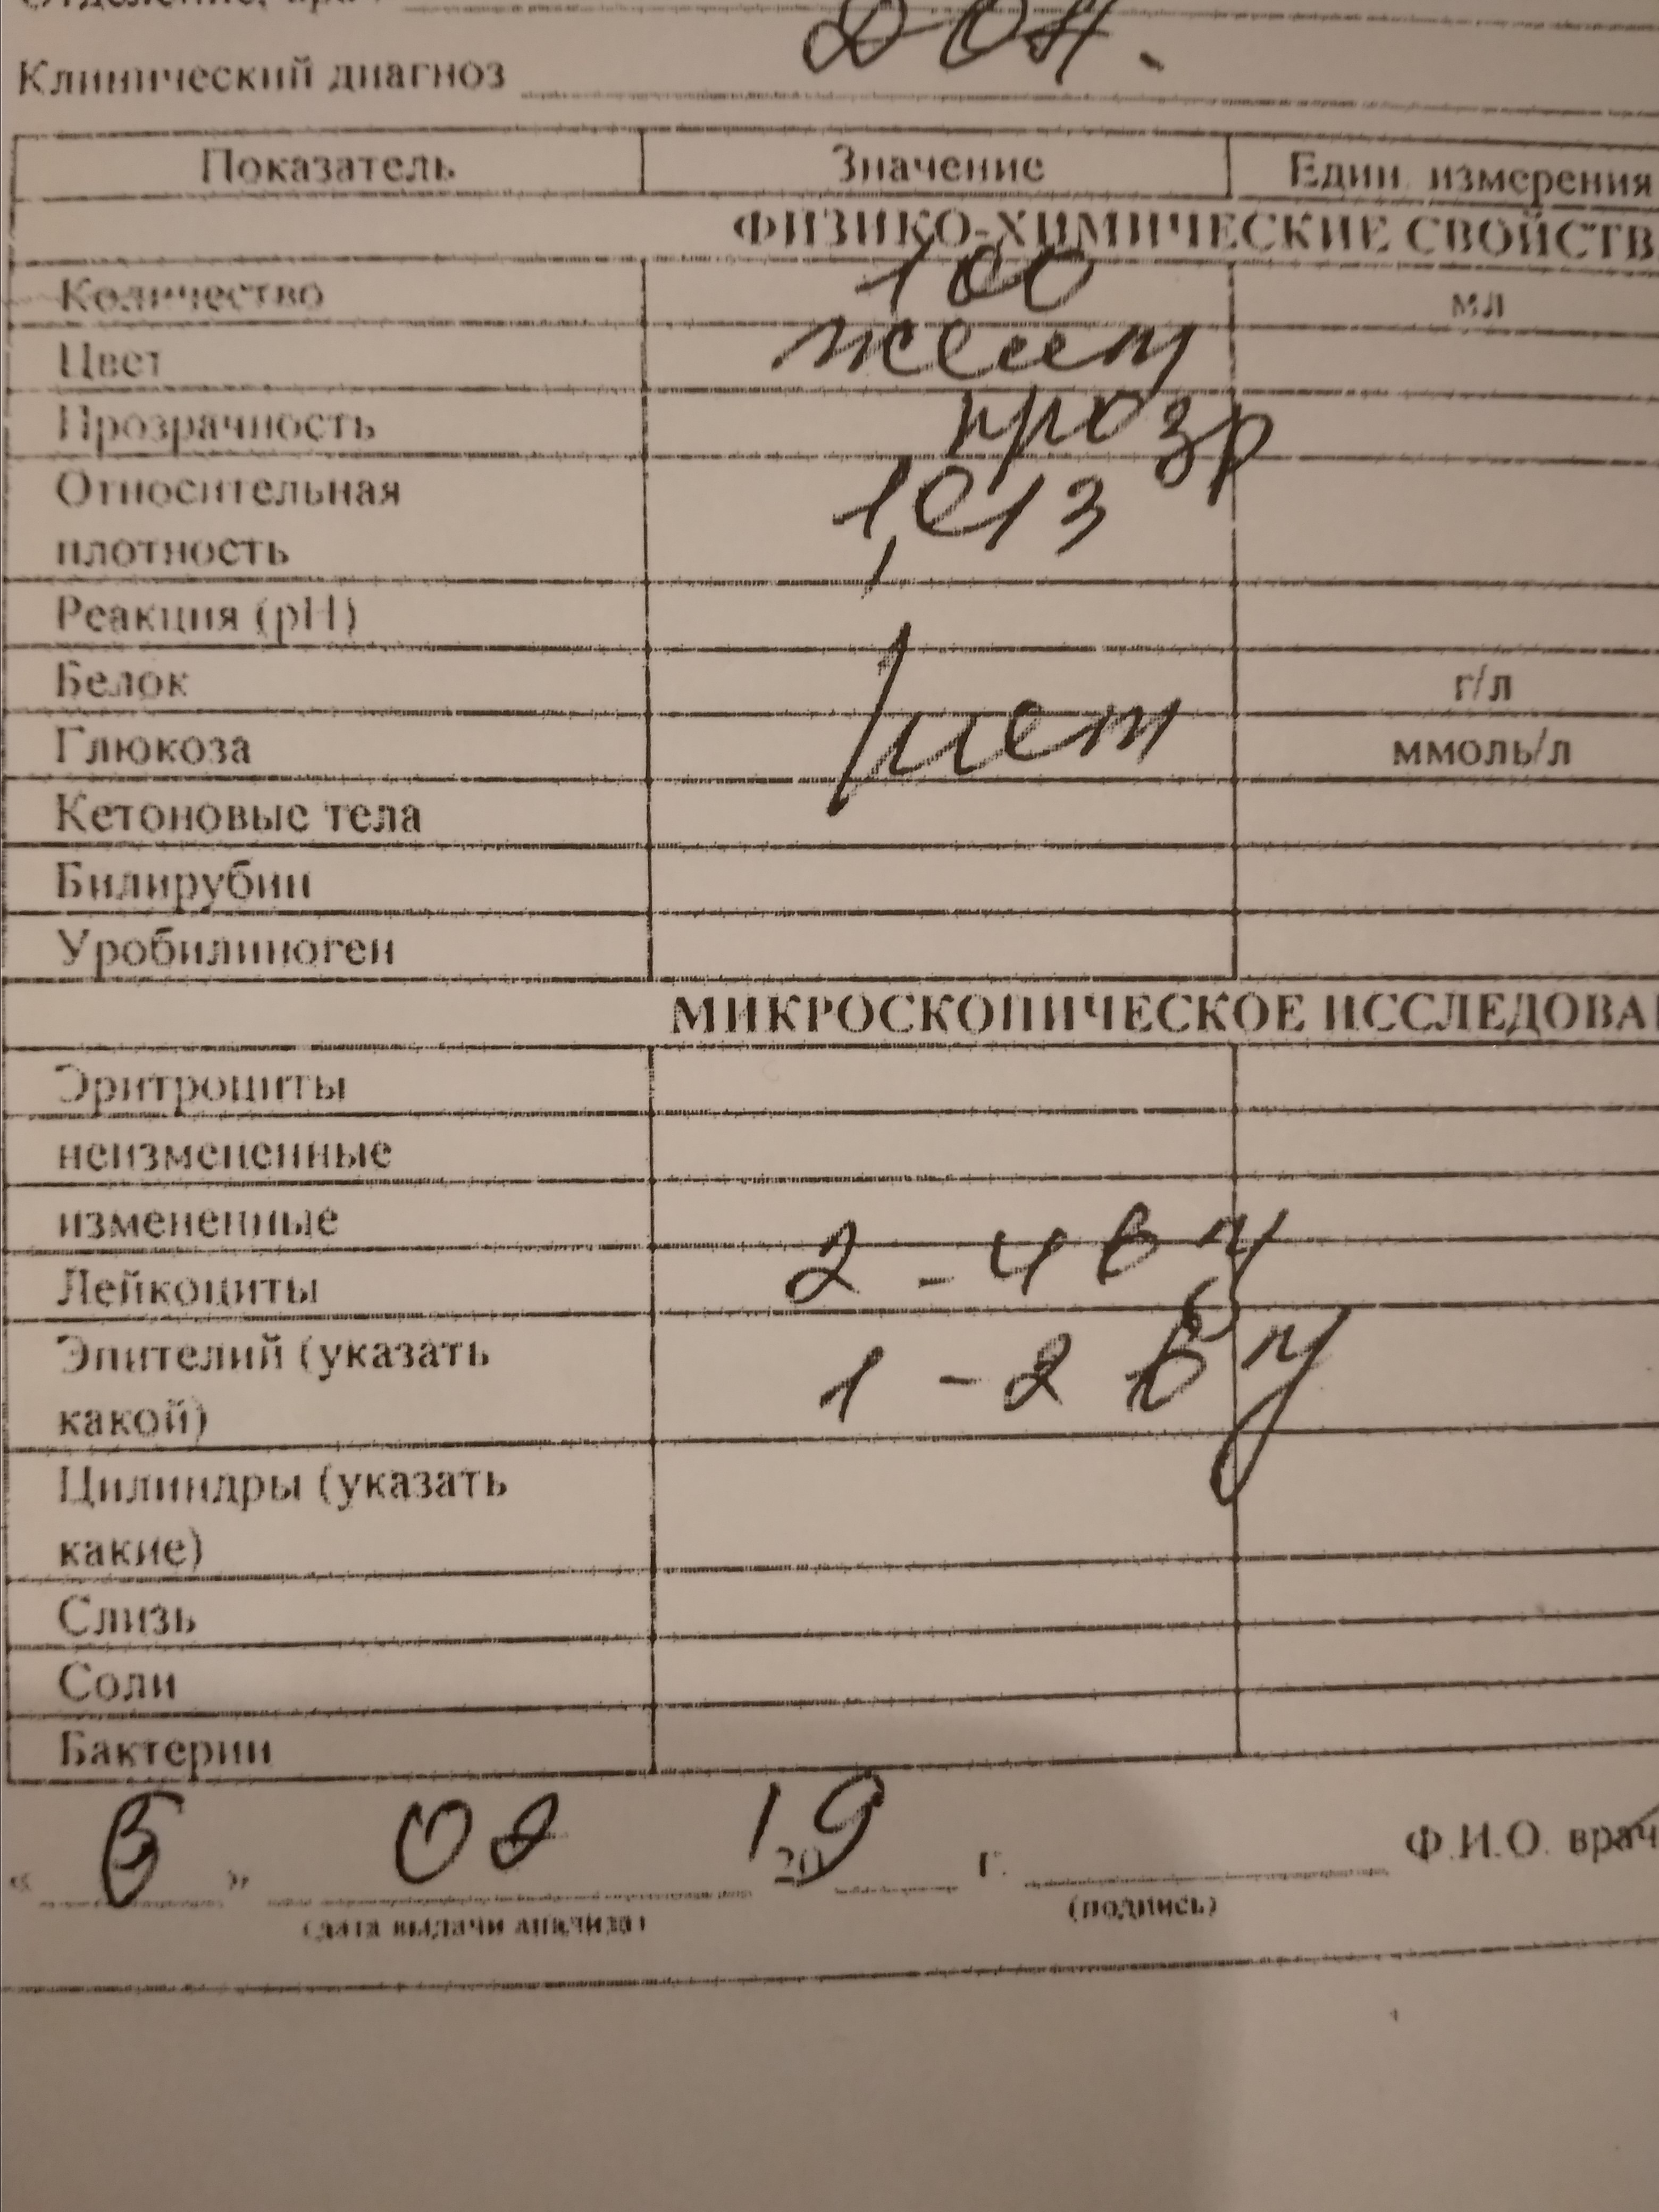 Клинический диагноз ДОН.
Показатель Значение Един. измерения
ФИЗИКО-ХИМИЧЕСКИЕ СВОЙСТВ
Количество 100 мл
Цвет желт
Прозрачность прозр
Относительная 1013
плотность
Реакция (pH)
Белок г/л
Глюкоза нет ммоль/л
Кетоновые тела
Билирубин
Уробилиноген
МИКРОСКОПИЧЕСКОЕ ИССЛЕДОВА
Эритроциты
неизмененные
измененные
Лейкоциты 2-4 в п
Эпителий (указать 1-2 в п
какой)
Цилиндры (указать
какие)
Слизь
Соли
Бактерии
« » 02 2019 г. Ф.И.О. врач
(дата выдачи анализа) (подпись)